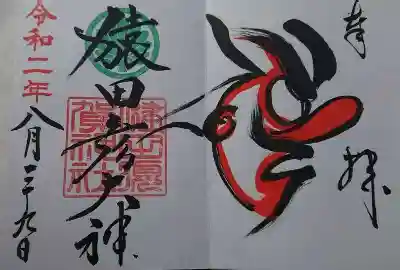 奉拝
猿田彦大神
令和二年
八月二十九日